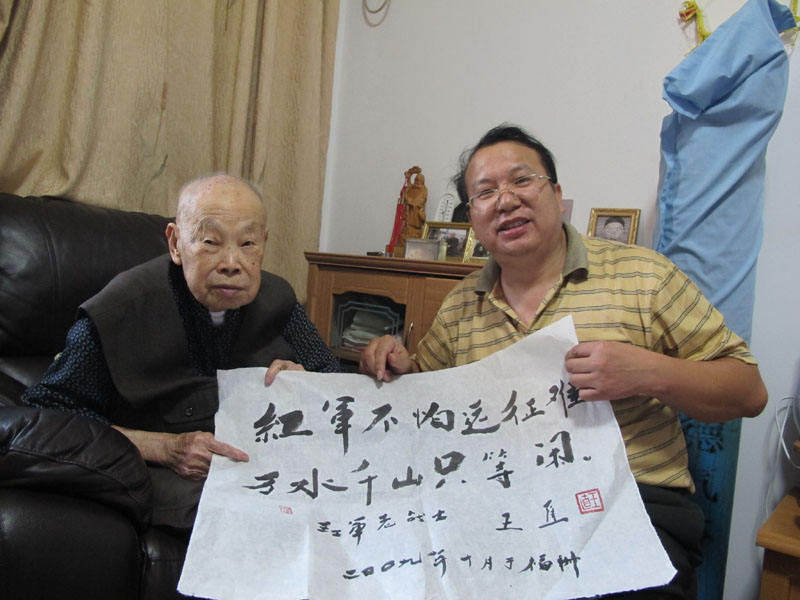 紅軍不怕远征难
万水千山只等闲。
红軍老战士 王直
二00九年十月于福州